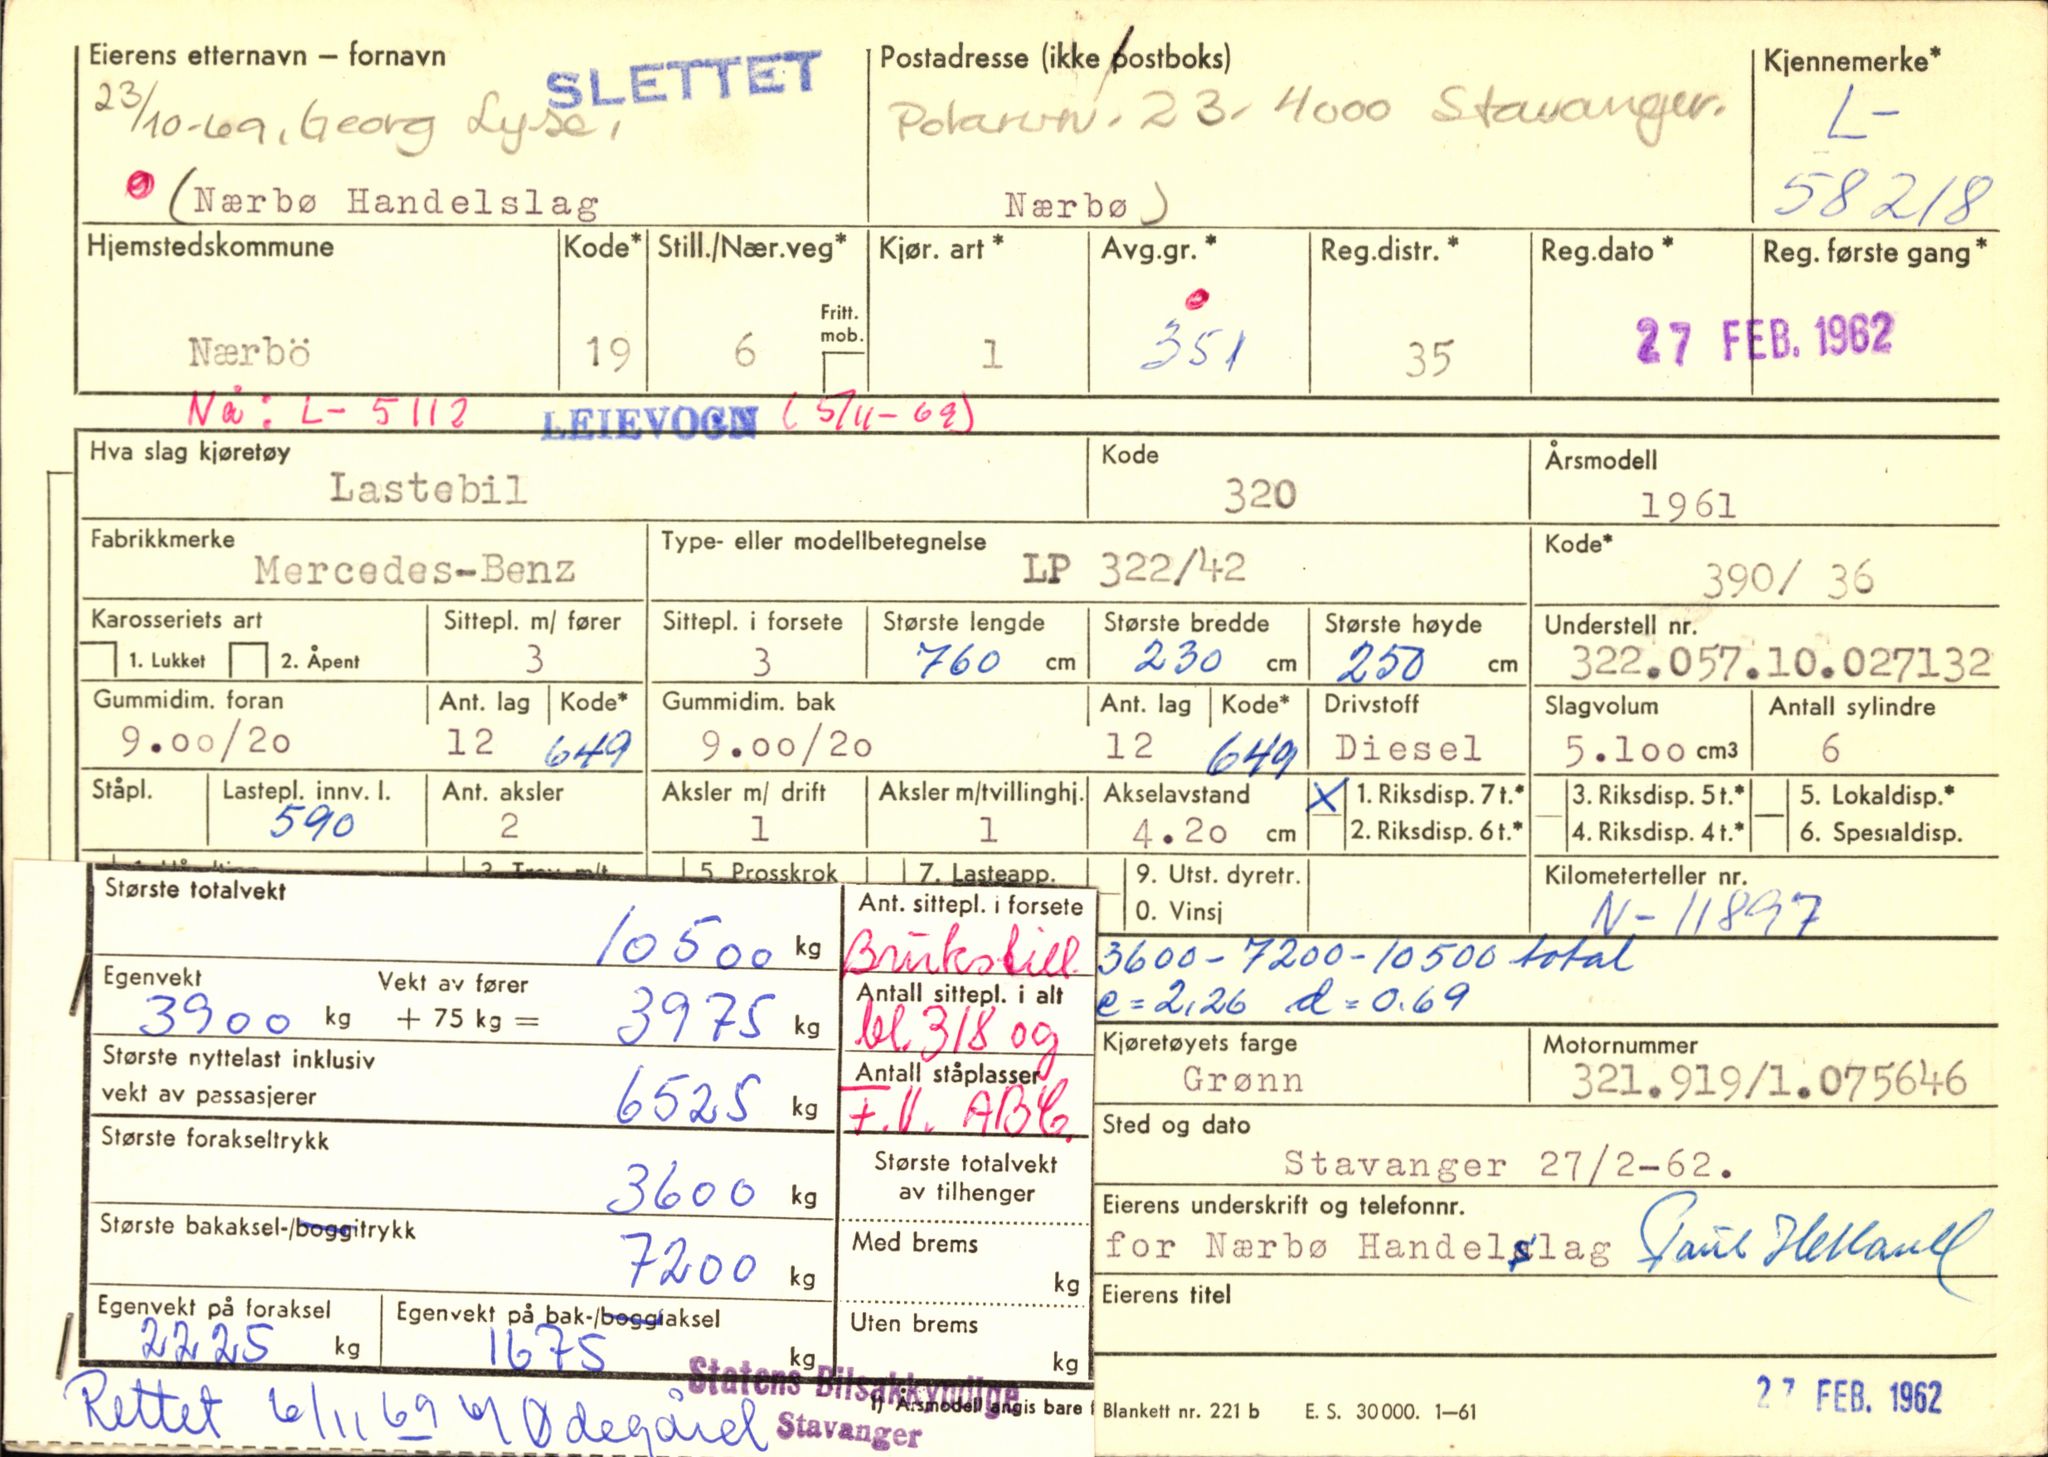 Eierens etternavn – fornavn
SLETTET
Postadresse (ikke postboks)
Kjennemerke*
23/10-69, Georg Lyse,
Polarvn. 23. 4000 Stavanger.
L-
58218
(Nærbø Handelslag
Nærbø)
Hjemstedskommune
Kode*
Still./Nær.veg*
Kjør. art*
Avg.gr.*
Reg.distr.*
Reg.dato*
Reg. første gang*
Fritt. mob.
Nærbö
19
6
1
351
35
27 FEB. 1962
Nå: L- 5112
LEIEVOGN
(5/11-69)
Hva slag kjøretøy
Lastebil
Kode
320
Årsmodell
1961
Fabrikkmerke
Mercedes-Benz
Type- eller modellbetegnelse
LP 322/42
Kode*
390/ 36
Karosseriets art
1. Lukket
2. Åpent
Sittepl. m/ fører
3
Sittepl. i forsete
3
Største lengde
760 cm
Største bredde
230 cm
Største høyde
250 cm
Understell nr.
322.057.10.027132
Gummidim. foran
9.00/20
Ant. lag
12
Kode*
649
Gummidim. bak
9.00/20
Ant. lag
12
Kode*
649
Drivstoff
Diesel
Slagvolum
5.100 cm3
Antall sylindre
6
Ståpl.
Lastepl. innv. l.
590
Ant. aksler
2
Aksler m/ drift
1
Aksler m/tvillinghj.
1
Akselavstand
4.20 cm
X
1. Riksdisp. 7 t.*
2. Riksdisp. 6 t.*
3. Riksdisp. 5 t.*
4. Riksdisp. 4 t.*
5. Lokaldisp.*
6. Spesialdisp.
5. Prosskrok
7. Lasteapp.
9. Utst. dyretr.
0. Vinsj
Kilometerteller nr.
N- 11897
3600-7200-10500 total
c=2,26 d=0.69
Største totalvekt
10500 kg
Ant. sittepl. i forsete
Brukstill.
Egenvekt
3900 kg
Vekt av fører
+ 75 kg =
3975 kg
Antall sittepl. i alt
bl. 318 og
Største nyttelast inklusiv
vekt av passasjerer
6525 kg
Antall ståplasser
F.V. ABC.
Største forakseltrykk
3600 kg
Største totalvekt
av tilhenger
Største bakaksel-/boggitrykk
7200 kg
Med brems
kg
Egenvekt på foraksel
2225 kg
Egenvekt på bak-/boggiaksel
1675 kg
Uten brems
kg
Kjøretøyets farge
Grønn
Motornummer
321.919/1.075646
Sted og dato
Stavanger 27/2-62.
Eierens underskrift og telefonnr.
for Nærbø Handelslag
Eierens titel
Rettet 6/11 69 Ødegård
Statens Bilsakkyndige
Stavanger
1) Årsmodell angis bare
Blankett nr. 221 b E. S. 30000. 1–61
27 FEB. 1962